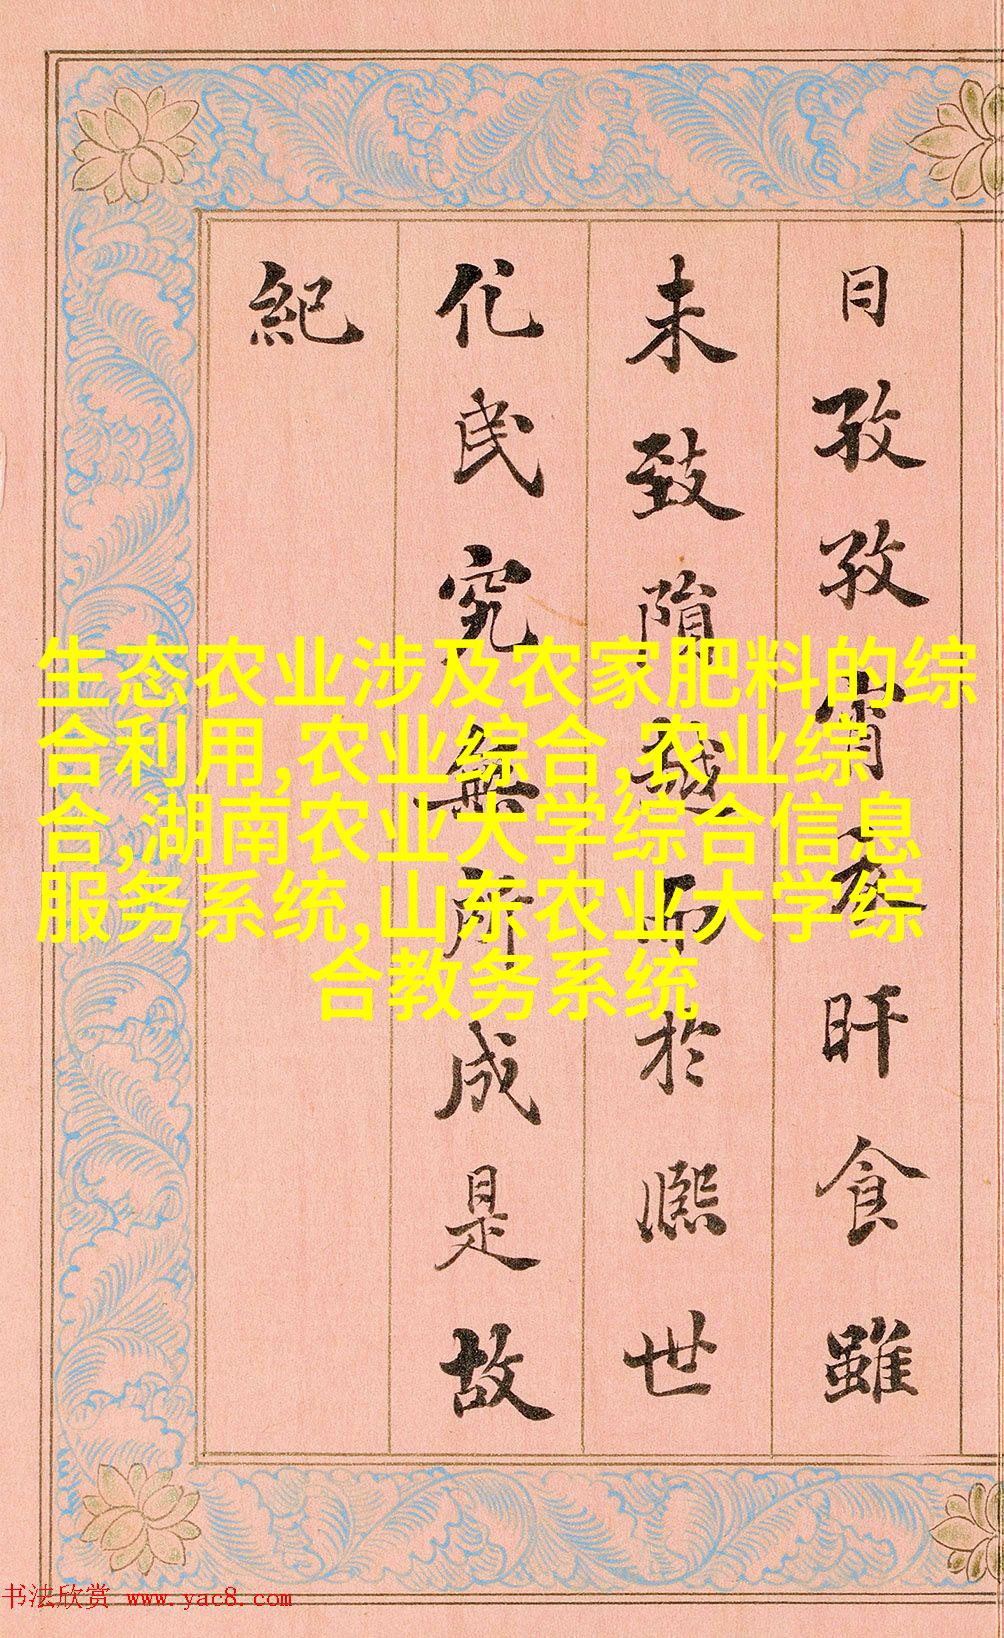 日孜孜宵衣旰食雖
未致隕越而於熙世
化民究無所成是故
紀
生态农业涉及农家肥料的综
合利用,农业综合,农业综
合,湖南农业大学综合信息
服务系统,山东农业大学综
合教务系统
书法欣赏 www.yac8.com